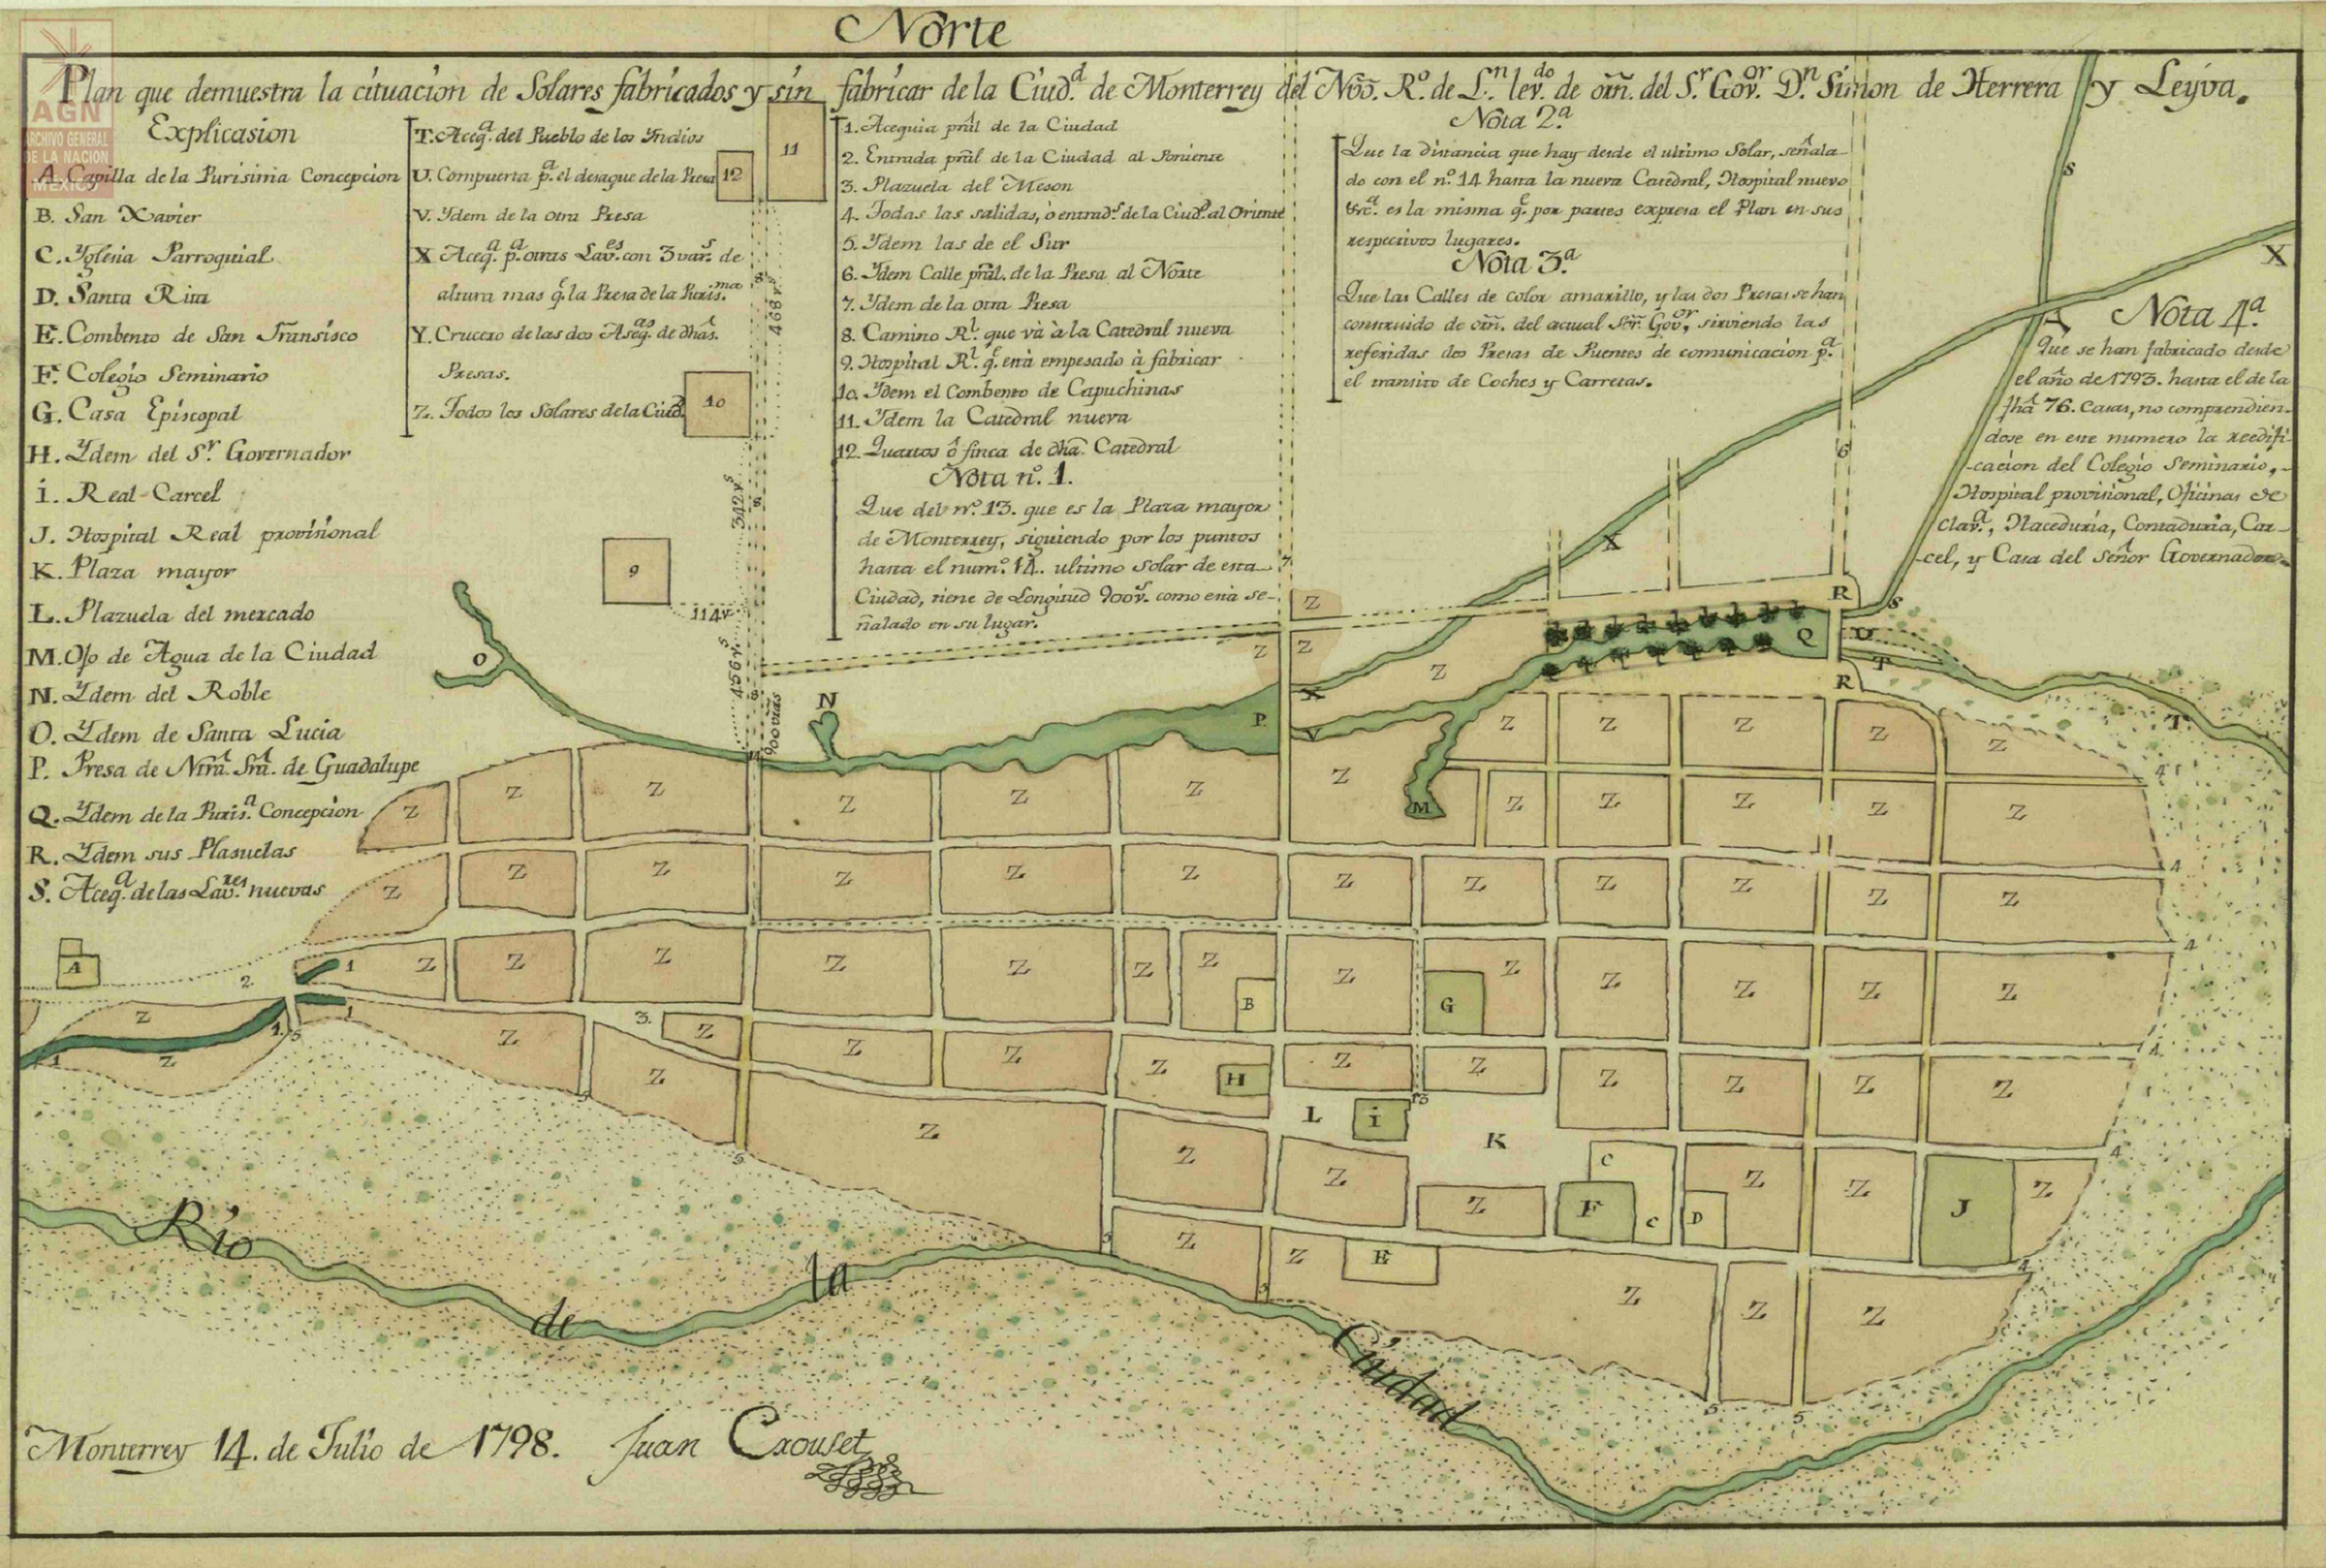 Norte
Plan que demuestra la cituacion de Solares fabricados y sin fabricar de la Ciud.ᵈ de Monterrey del Nvō. R.º de L.ⁿ lev.ᵈᵒ de orñ. del S.ʳ Gov.ᵒʳ D.ⁿ Simon de Herrera y Leyva.
AGN
ARCHIVO GENERAL
DE LA NACION
MÉXICO
Explicasion
A. Capilla de la Purisima Concepcion
B. San Xavier
C. Yglesia Parroquial
D. Santa Rita
E. Combento de San Fransisco
F. Colegio Seminario
G. Casa Episcopal
H. Ydem del S.ʳ Governador
i. Real Carcel
J. Hospital Real provisional
K. Plaza mayor
L. Plazuela del mercado
M. Ojo de Agua de la Ciudad
N. Ydem del Roble
O. Ydem de Santa Lucia
P. Presa de Ntrā. Srā. de Guadalupe
Q. Ydem de la Puris.ᵃ Concepcion
R. Ydem sus Plasuelas
S. Aceq.ᵃ de las Lav.ʳᵉˢ nuevas
T. Aceq.ᵃ del Pueblo de los Yndios
U. Compuerta p.ᵃ el desague de la Presa
V. Ydem de la otra Presa
X Aceq.ᵃ p.ᵃ otras Lav.ᵉˢ con 3 var.ˢ de
altura mas q.ᵉ la Presa de la Puris.ᵐᵃ
Y. Crucero de las dos Aseq.ᵃˢ de dhās.
Presas.
Z. Todos los Solares de la Ciud.ᵈ
1. Acequia prāl de la Ciudad
2. Entrada prāl de la Ciudad al Poniente
3. Plazuela del Meson
4. Todas las salidas, ò entrad.ˢ de la Ciud.ᵈ al Oriente
5. Ydem las de el Sur
6. Ydem Calle prāl. de la Presa al Norte
7. Ydem de la otra Presa
8. Camino R.ˡ que và à la Catedral nueva
9. Hospital R.ˡ q.ᵉ està empesado à fabricar
10. Ydem el Combento de Capuchinas
11. Ydem la Catedral nueva
12. Quartos ô finca de dhā. Catedral
Nota n.º 1.
Que del n.º 13. que es la Plaza mayor
de Monterrey, siguiendo por los puntos
hasta el num.º 14. ultimo Solar de esta
Ciudad, tiene de Longitud 900 v.ˢ como està se-
ñalado en su lugar.
Nota 2.ᵃ
Que la distancia que hay desde el ultimo Solar, señala-
do con el n.º 14 hasta la nueva Catedral, Hospital nuevo
&c.ᵃ es la misma q.ᵉ por partes expresa el Plan en sus
respectivos lugares.
Nota 3.ᵃ
Que las Calles de color amarillo, y las dos Presas se han
construido de orñ. del actual Sōr. Gov.ᵒʳ, sirviendo las
referidas dos Presas de Puentes de comunicacion p.ᵃ
el transito de Coches y Carretas.
Nota 4.ᵃ
Que se han fabricado desde
el año de 1793. hasta el de la
fhā 76. Casas, no comprendien-
dose en este numero la reedifi-
cacion del Colegio Seminario,
Hospital provisional, Oficinas de
Clav.ᵃ, Haceduria, Contaduria, Car-
cel, y Casa del Señor Governador.
11
12
10
9
468 v.ˢ
342 v.ˢ
114 v.ˢ
456 v.ˢ
900 vrās
Rio de la Ciudad
Monterrey 14. de Julio de 1798. Juan Crouset